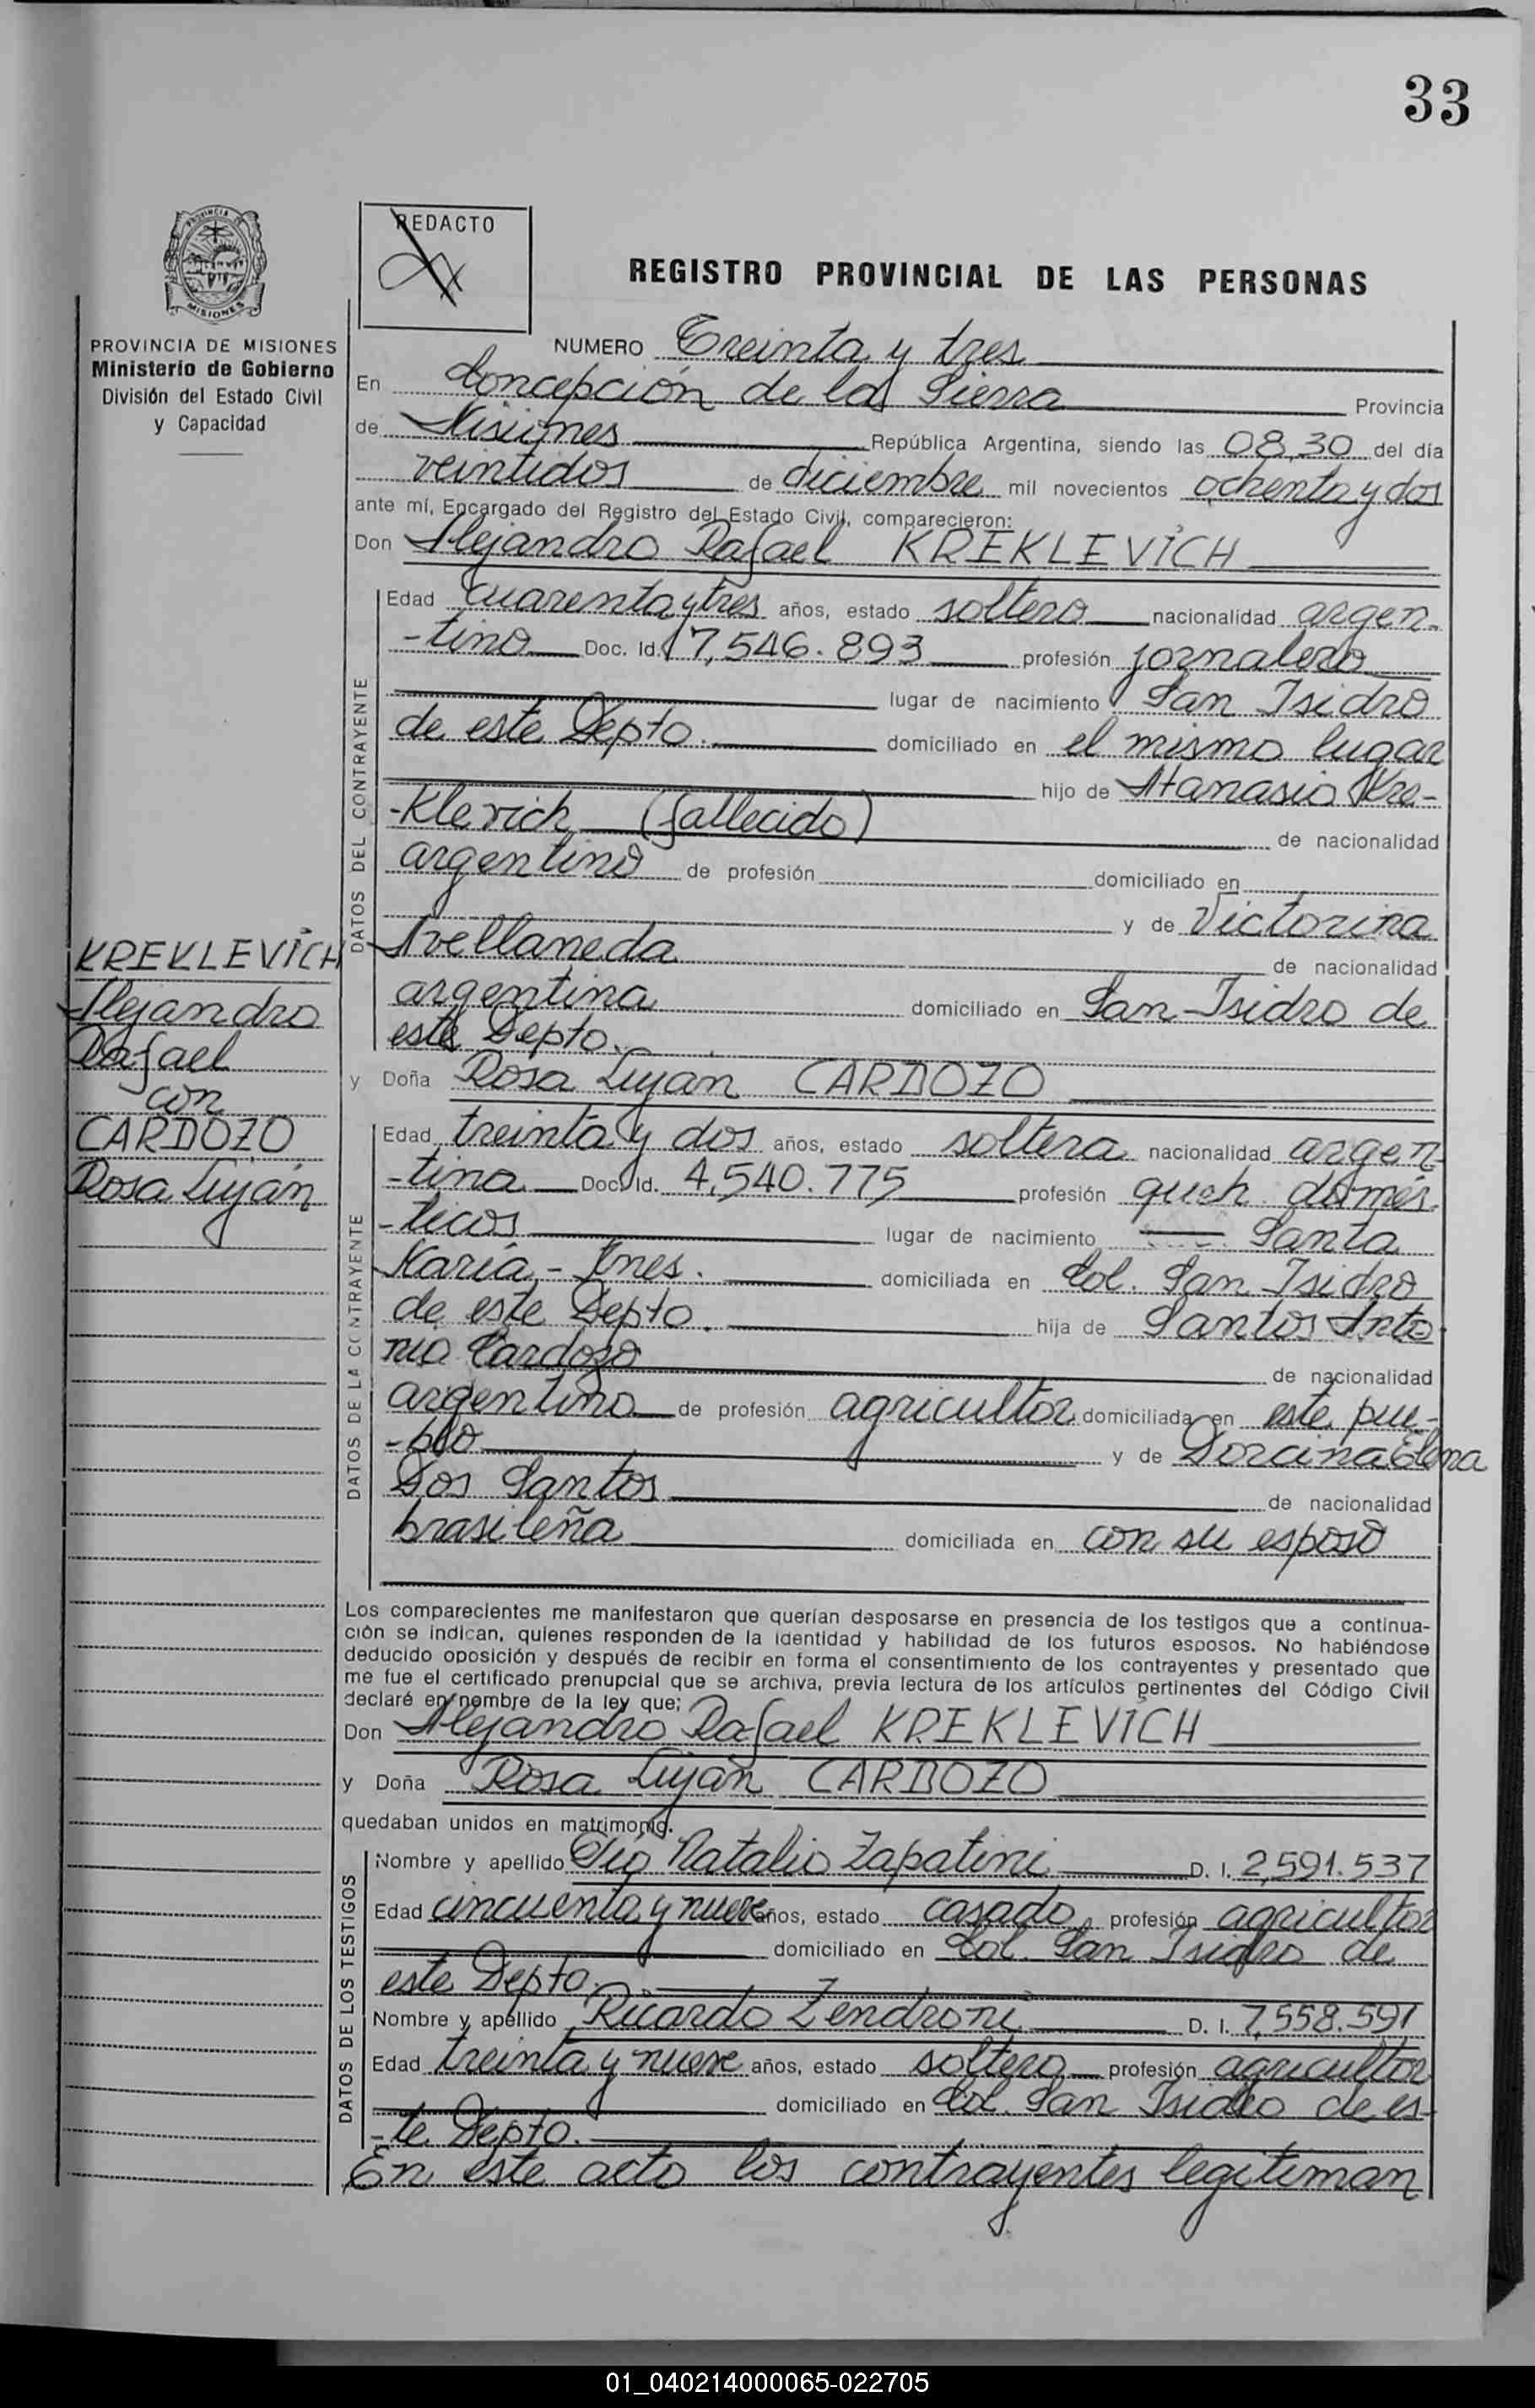 33
PROVINCIA DE
MISIONES
REDACTO
REGISTRO PROVINCIAL DE LAS PERSONAS
PROVINCIA DE MISIONES
Ministerio de Gobierno
División del Estado Civil
y Capacidad
NUMERO Treinta y tres
En Concepción de la Sierra Provincia
de Misiones República Argentina, siendo las 08,30 del día
veintidos de diciembre mil novecientos ochenta y dos
ante mí, Encargado del Registro del Estado Civil, comparecieron:
Don Alejandro Rafael KREKLEVICH
DATOS DEL CONTRAYENTE
Edad cuarenta y tres años, estado soltero nacionalidad argen-
-tino Doc. Id. 7,546.893 profesión jornalero
lugar de nacimiento San Isidro
de este Depto. domiciliado en el mismo lugar
hijo de Atanasio Kre-
-klevich (fallecido) de nacionalidad
argentino de profesión domiciliado en
y de Victorina
Avellaneda de nacionalidad
argentina domiciliado en San Isidro de
este Depto.
KREKLEVICH
Alejandro
Rafael
con
CARDOZO
Rosa Luján
y Doña Rosa Lujan CARDOZO
DATOS DE LA CONTRAYENTE
Edad treinta y dos años, estado soltera nacionalidad argen-
-tina Doc. Id. 4,540.775 profesión queh. domés-
-ticos lugar de nacimiento Santa
María,- Mnes. domiciliada en Col. San Isidro
de este Depto. hija de Santos Anto
nio Cardozo de nacionalidad
argentino de profesión agricultor domiciliada en este pue-
-blo y de Dorcina Elena
Dos Santos de nacionalidad
brasileña domiciliada en con su esposo
Los comparecientes me manifestaron que querían desposarse en presencia de los testigos que a continua-
ción se indican, quienes responden de la identidad y habilidad de los futuros esposos. No habiéndose
deducido oposición y después de recibir en forma el consentimiento de los contrayentes y presentado que
me fue el certificado prenupcial que se archiva, previa lectura de los artículos pertinentes del Código Civil
declaré en nombre de la ley que:
Don Alejandro Rafael KREKLEVICH
y Doña Rosa Luján CARDOZO
quedaban unidos en matrimonio.
DATOS DE LOS TESTIGOS
Nombre y apellido Pío Natalio Zapatini D. I. 2,591.537
Edad cincuenta y nueve años, estado casado profesión agricultor
domiciliado en Col. San Isidro de
este Depto.
Nombre y apellido Ricardo Zendroni D. I. 7,558.591
Edad treinta y nueve años, estado soltero profesión agricultor
domiciliado en Col. San Isidro de es-
-te Depto.
En este acto los contrayentes legitiman
01_040214000065-022705